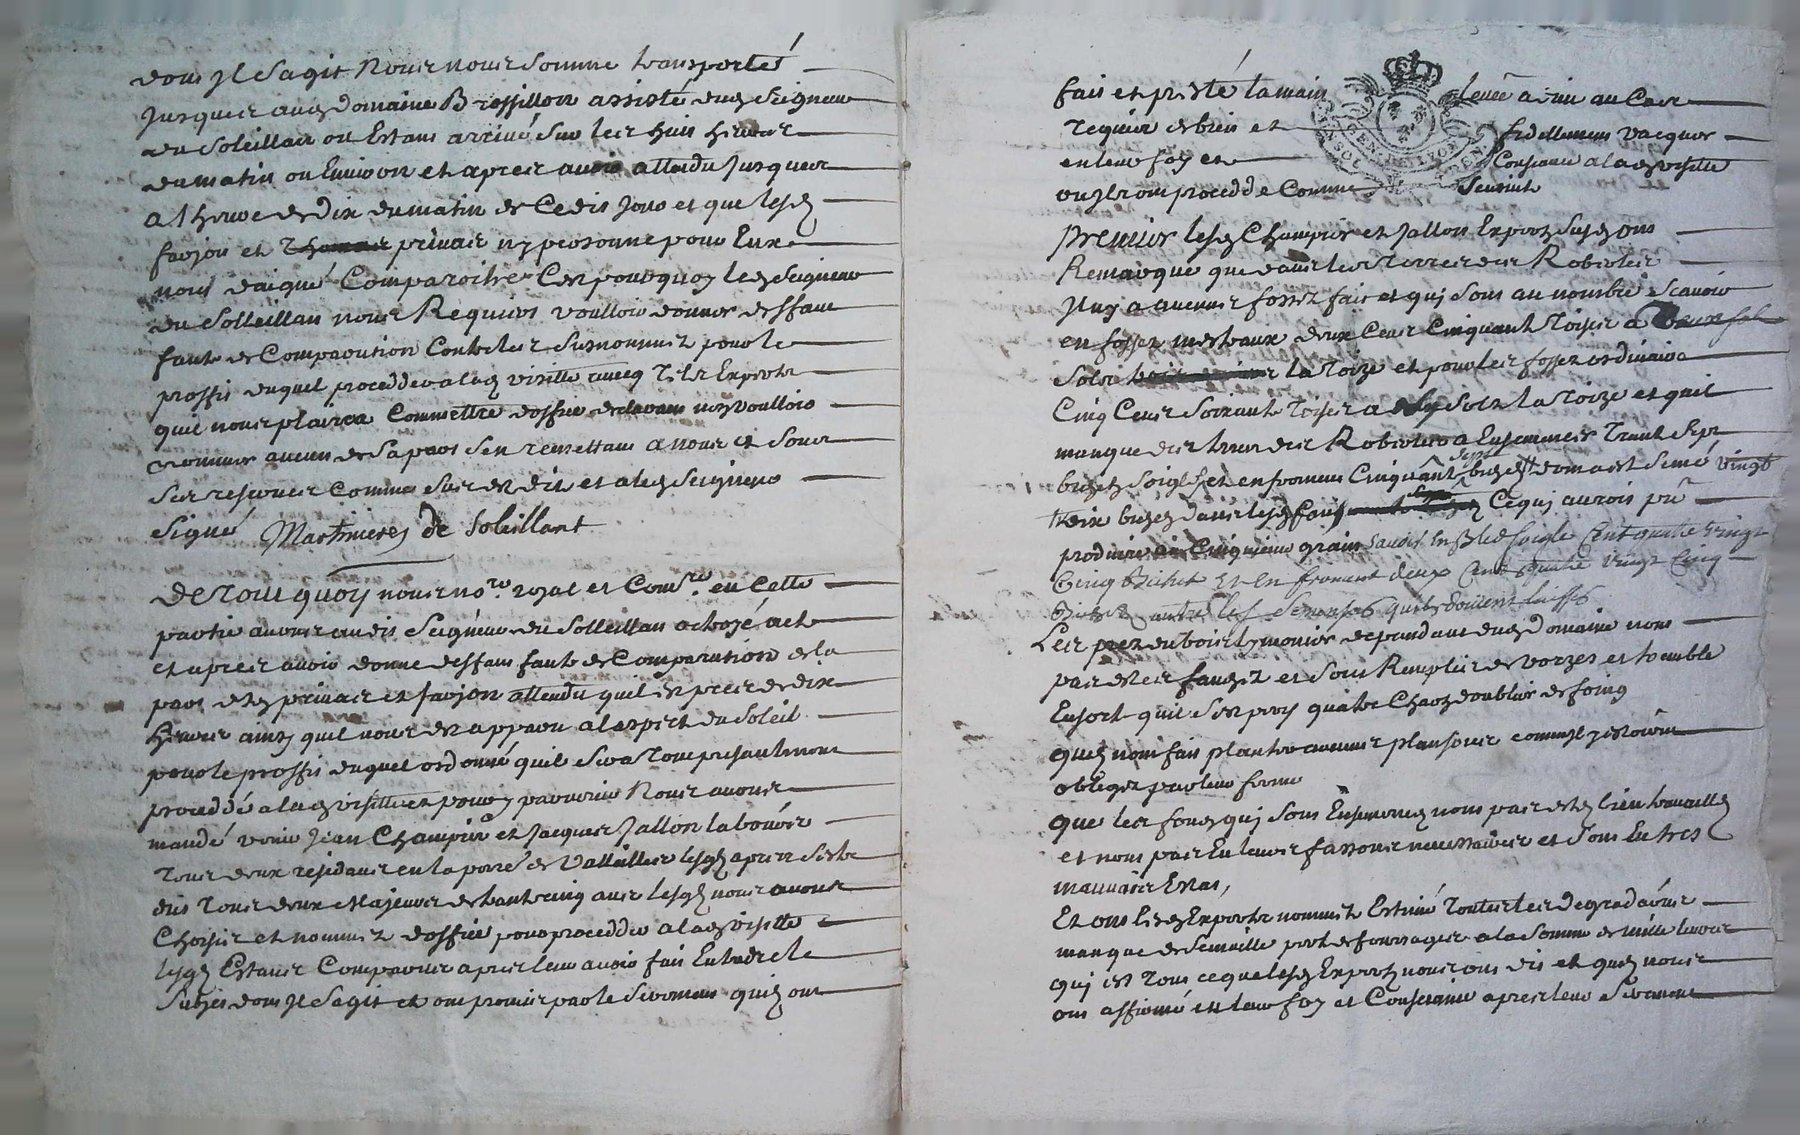 dont Il sagit Nous nous somme transportés
Jusques aud domaine Bressillon assisté dud Seigneur
du Soleillan ou Estans arrivé sur les huit heures
du matin ou Environ et apres avoir attendu Jusques
a lheure de dix du matin de Cedit Jour et que lesd
favjon et prenais ny personne pour Eux
nont daigné Comparoitre Cest pourquoy led Seigneur
du Solleillan nous Requiert voulloir donner deffaut
faute de Comparution Contre les surnommez pour le
proffit duquel procedder a lad visitte avecq tels Experts
quil nous plairea Commettre doffice declarant ney voulloir
nommer aucun de sa part sen remettant a nous et sous
ses reserves Comme sus est dit et a led Seigneur
Signé Martinieres de Soleillant
De Tout quoy nous no.re royal et Com.re en Cette
partie avons audit Seigneur du Solleillan octroyé acte
et apres avoir donné deffaut faute de Comparution de la
part desd prenais et favjon attendu quil est pres de dix
heures ainsy quil nous est apparu a laspect du Soleil
pour le proffit duquel ordonné quil sera Tout presentement
proceddé a lad visitte et pour y parvenir Nous avons
mandé venir Jean Champier et Jacques Jallon laboureur
Tous deux residants en la parr.e de Valleilles lesqls apres setre
dits Tous deux Majeurs de trente cinq ans lesqls nous avons
Choisir et nommez doffice pour procedder a lad visitte
lesqls Estans Comparus apres leur avoir fait Entendre le
Subjet dont Il Sagit et ont promis par le Serment quils ont
fait et presté la main levée a dieu au Cas
requier de bien et fidellement vacquer
en leur foy et Consiance a lad visitte
ou Ils ont procedde Comme Sensuit
Premier lesd Champier et Jallon Experts susd ont
Remarqué que dans les Terres des Robertes
Il ny a aucuns fossez fait et qui sont au nombre scavoir
en fossez mestraux deux Cens Cinquante Toises a
sols la Toize et pour les fossez ordinaire
Cinq Cens Soixante Toises a sols la Toize et quil
manque des terres des Robertes a Ensemencer Trente Sept
bichets soigle et en froment Cinquante sept bichets dont a esté semé vingt
dix bichets dans lesd fons Ce qui auroit pû
produire au Cinquieme grain Savoir en Bled soigle Cent quatre vingt
Cinq Bichet Et en froment deux Cent quatre vingt Cinq
Bichets outre les semences quils doivent laisser
Les prez du bois Lymonier dependant dud domaine nont
pas estes fauchez et sont Remplis de vorzes et tremble
Ensort quil sest pery quatre Chars doubles de foing
quils nont fait planter aucuns plansons comme Il y estoient
obligez par leur ferme
Que les fons qui sont Ensemencez nont pas estés bien travaillés
et nont pas Eu leurs fassons necessaires et sont En tres
mauvais Estat,
Et ont lesd Experts nommez Estimé Toutes les degradaons
manque de semaille perte de fourrages a la somme de mille livres
qui est Tout ce que lesd Experts nous ont dit et quils nous
ont affirmé en leur foy et Consciance apres leur Serment